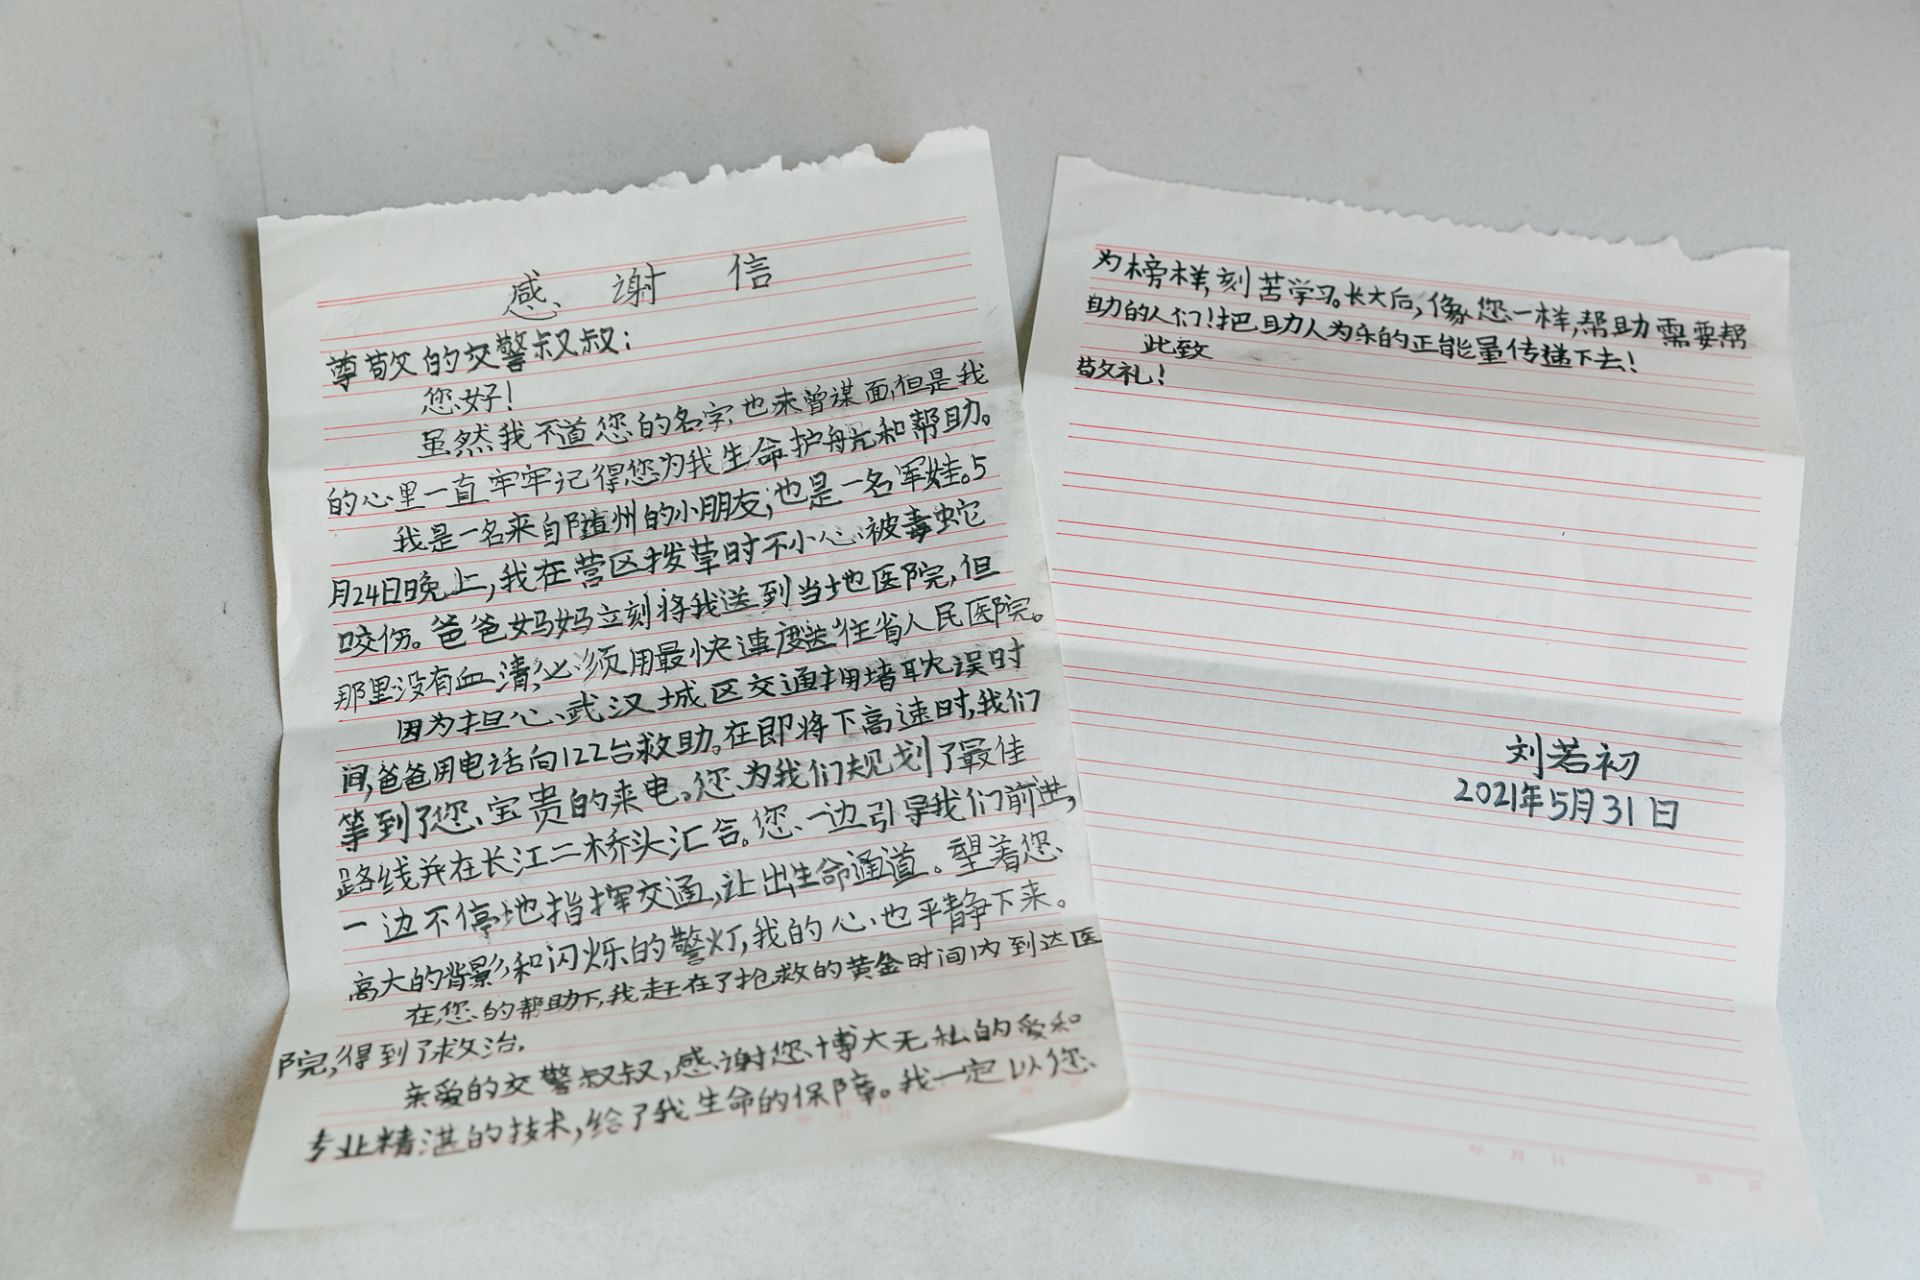 感谢信
尊敬的交警叔叔：
您好！
虽然我不道您的名字，也未曾谋面，但是我
的心里一直牢牢记得您为我生命护航和帮助。
我是一名来自随州的小朋友，也是一名军娃。5
月24日晚上，我在营区拨草时不小心被毒蛇
咬伤。爸爸妈妈立刻将我送到当地医院，但
那里没有血清，必须用最快速度送往省人民医院。
因为担心武汉城区交通拥堵耽误时
间，爸爸用电话向122台救助。在即将下高速时，我们
等到了您宝贵的来电。您为我们规划了最佳
路线并在长江二桥头汇合。您一边引导我们前进，
一边不停地指挥交通，让出生命通道。望着您
高大的背影和闪烁的警灯，我的心也平静下来。
在您的帮助下，我赶在了抢救的黄金时间内到达医
院，得到了救治。
亲爱的交警叔叔，感谢您博大无私的爱和
专业精湛的技术，给了我生命的保障。我一定以您
为榜样，刻苦学习。长大后，像您一样，帮助需要帮
助的人们！把助人为乐的正能量传递下去！
此致
敬礼！
刘若初
2021年5月31日
年 月 日
第 页